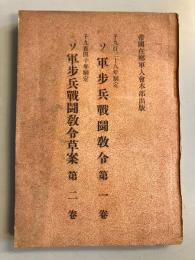 帝國在鄕軍人會本部出版
千九百二十八年制定
ソ軍步兵戰鬪敎令 第一卷
千九百四十年制定
ソ軍步兵戰鬪敎令草案 第二卷